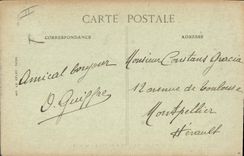 CARTE POSTALE
CORRESPONDANCE
ADRESSE
Amical bonjour
O. Guiffre
Monsieur Constans Gracia
12 avenue de Toulouse
Montpellier
Hérault